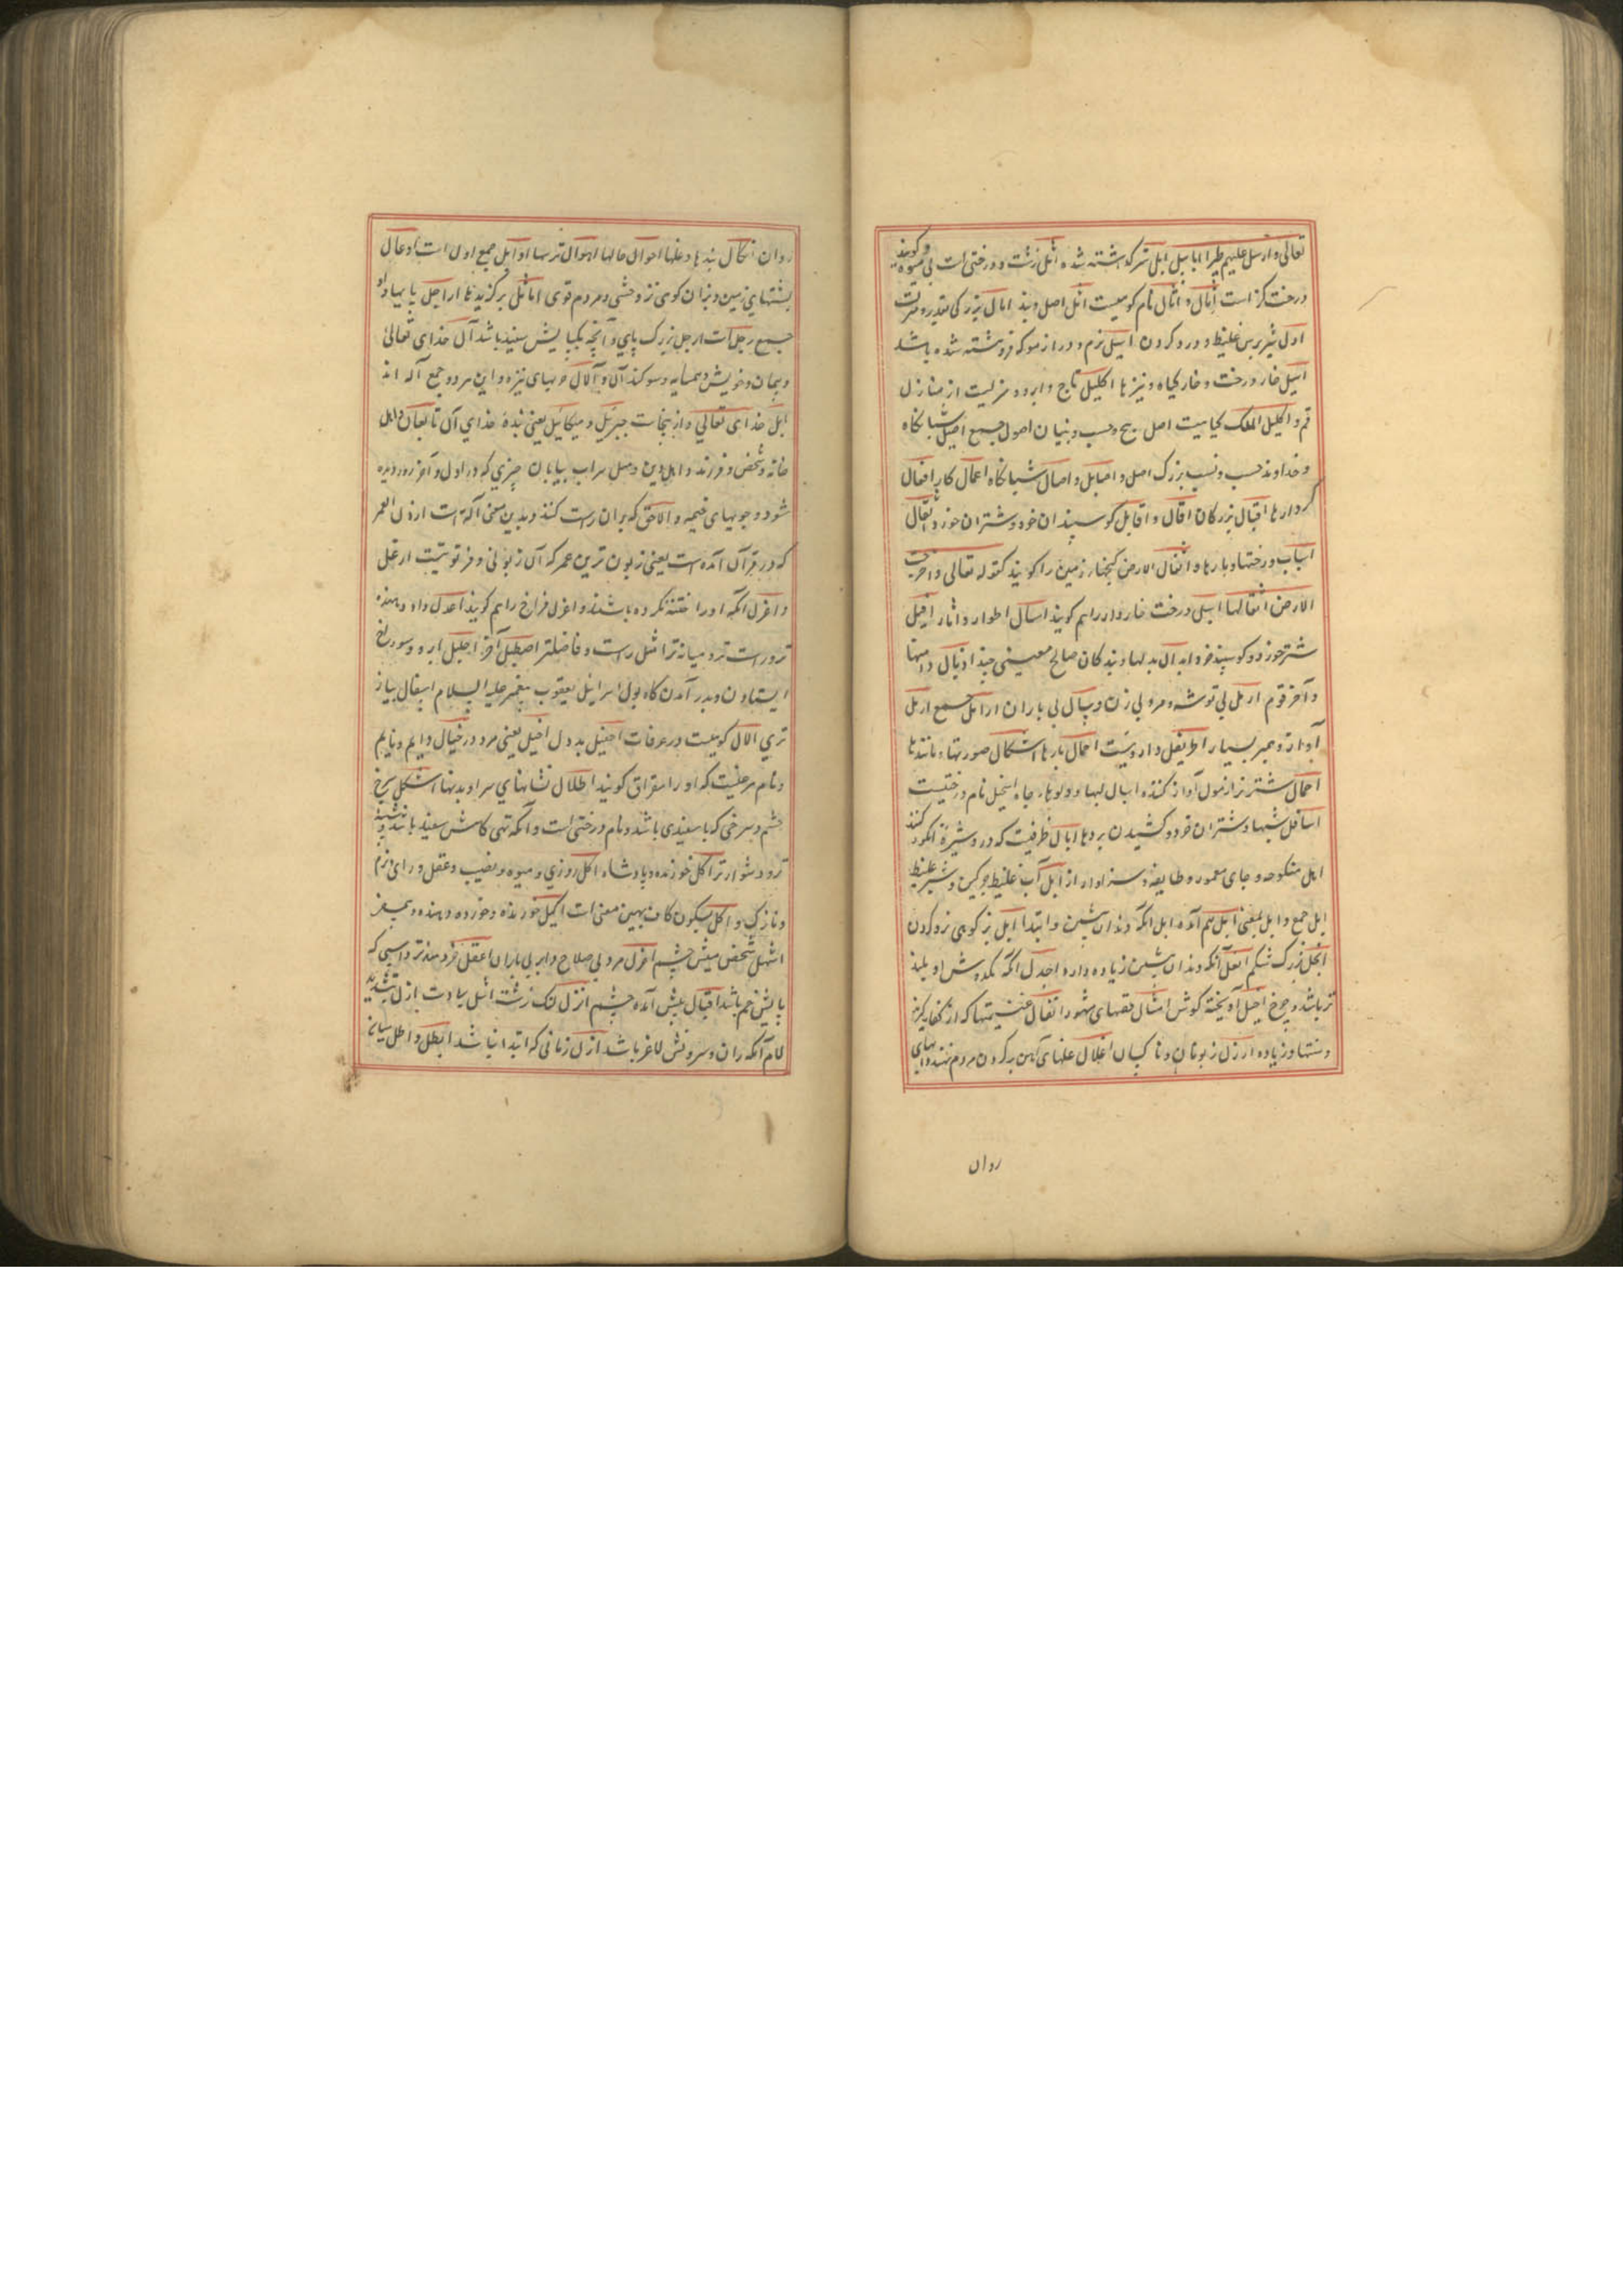 تعالی و ارسل علیهم طیرا ابابیل ابل شتر که هشته شده اثل زشت و درختی است بی میوه و کویند
درخت کز است اثال و اثالی نام کوهیست اثل اصل و بند ابال بزرکی و قدر و منزلت
اول شیر بس غلیظ و درو کردن اسیل نرم و دراز مو که فروهشته شده باشد
اسیل خار درخت و خار کیاه و نیزها اکلیل تاج و ابر و منزلیست از منازل
قمر و اکلیل الملک کیاهیست اصل بیخ و حسب و بنیان اصول جمیع اصیل شبانکاه
و خداوند حسب و نسب بزرک اصل و اصایل و اصال شبانکاه اعمال کار افعال
کردارها اقبال بزرکان اقال و اقایل کوسپندان خرد و شتران خرد و اثقال
اسباب و رختها و بارها و اثقال الارض کنجهاء زمین را کویند کقوله تعالی و اخرجت
الارض اثقالها اسل درخت خاردار را هم کویند اسال اطوار و اثار افیل
شتر خرد و کوسپند خرد ابدال بدلها و بندکان صالح معینی چند اذیال دامنها
و آخر قوم ارمل بی توشه و مرد بی زن و سال بی باران ارامل جمیع ارمل
آوازه و بمیر بسیار اطریفل داروییست احمال بارها اشکال صورتها و مانندها
اجمال شتر نر ازمول آواز کننده اسبال لبها و دولوها چاه اسحل نام درختیست
اسافل شبها و شتران خرد و کشیدن بردها ابال ظرفیست که درو شیره انکور کنند
اهل منکوحه و جای معمور و طایفه و سزاوار از ابل آب غلیظ چرکین و شیر غلیظ
ابل جمع و ابل بمعنی ابل هم آمده ابل آنکه دندان پیشین و ابتدا ایل بز کوهی نر و کردن
ابجل بزرک شکم اثعل آنکه دندان پیشین زیاده دارد اجدل آنکه یکدوش او بلند
تر باشد و چرخ اجیل آویخته کوش امثال قصهای مشهور انفال غنیمتها که از کفار کیرند
و سنتها و زیاده ارزل زبونان و ناکسان اغلال غلهای آهن بر کردن مردم نهند و آبهای
روان
روان انکال بندها و غلها احوال حالها اهوال ترسها اوایل جمیع اول است اوعال
پشتهای زمین و بزان کوهی نر وحشی و مردم قوی اماثل برکزیدها اراجل پایها و او
جمیع رجل است ارجل بزرک پای و آنچه یکپایش سفید باشد آل خدای تعالی
و پیمان و خویش و همسایه و سوکند ال و آلال حربهای نیزه و این هر دو جمع اله اند
ایل خدای تعالی و از ینجاست جبرئیل و میکائیل یعنی بنده خدای آل تابعان و اهل
خانه و شخص و فرزند و اهل دین و مثل سراب بیابان چیزی که در اول و آخر روز دیده
شود و چوبهای خیمه و الاحق که بران راست کنند و بدین معنی آله است ارذل العمر
که در قرآن آمده است یعنی زبون ترین عمر که آن زبونی و فرتوتیست ارغل
و اغرل آنکه او را ختنه نکرده باشند و اغرل فراخ را هم کویند اعدل داد دهنده
تر و راست تر و میانه تر امثل راست و فاضلتر اصطبل آخر اجلیل ابر و سوراخ
ایستادن و بدر آمدن کاه بول اسرائیل یعقوب پیغمبر علیه السلام اسقال پیاز
تری الال کوهیست در عرفات اجفیل بد دل اخیل یعنی مرد در خیال دایم و نایم
و نام مرغیست که او را مقراق کویند اطلال نشانهای سرا و بدنها اشکل سرخ
چشم و سرخی که با سفیدی باشد و نام درختی است و آنکه تهی کاهش سفید باشد و
تر و دشوارتر اکل خورنده و پادشاه اکل روزی و میوه و نصیب و عقل و رای و نرم
و نازک و اکل بسکون کاف بهمین معنی است اکیل خورنده و خورده و دهنده و بیمغز
اشهل شخص میش چشم اعزل مرد بی صلاح و ابر بی باران اعقل خردمندتر و اسپی که
پایش خم باشد اقبال پیش آمده چشم انزل لنک زشت ائل ریاست ازل بتشدید
لام آنکه ران و سرونش لاغر باشد ازل زمانی که ابتدا نباشد ابطل و اطل میانه